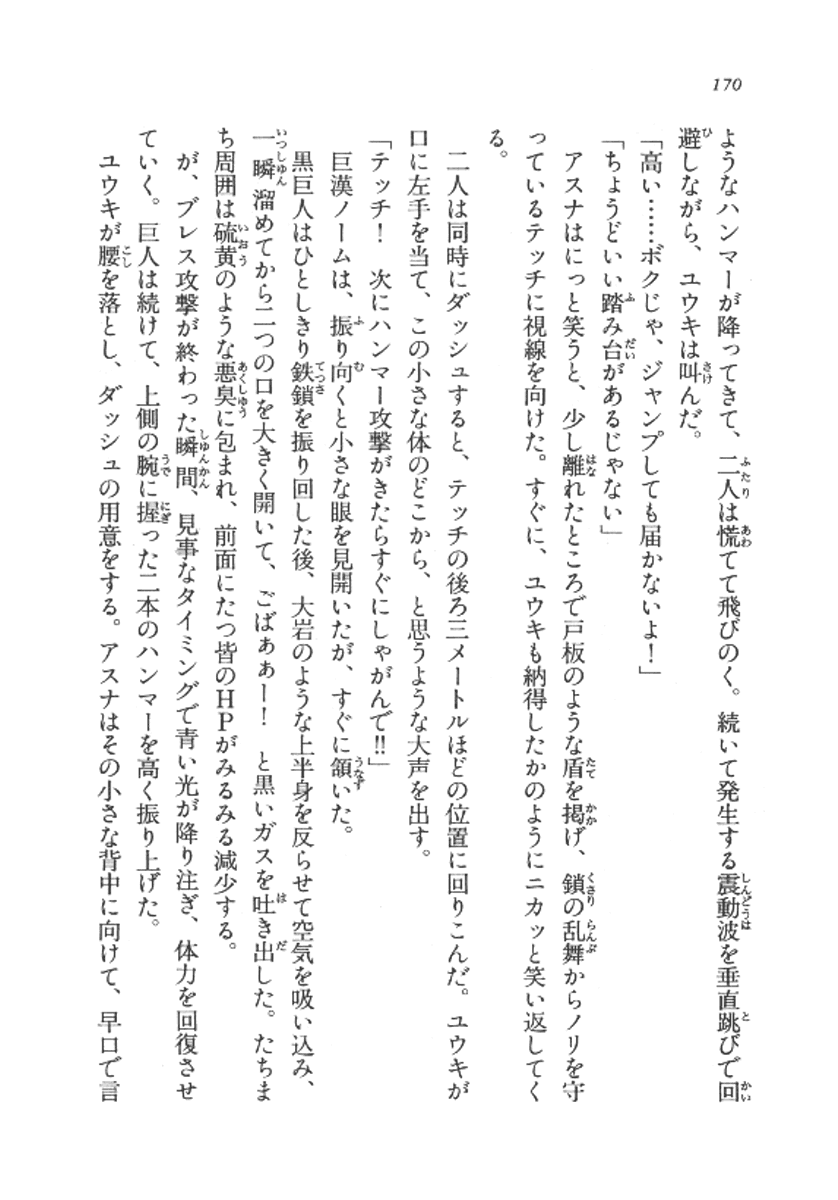 170
ようなハンマーが降ってきて、二人は慌てて飛びのく。続いて発生する震動波を垂直跳びで回
避しながら、ユウキは叫んだ。
「高い……ボクじゃ、ジャンプしても届かないよ！」
「ちょうどいい踏み台があるじゃない」
アスナはにっと笑うと、少し離れたところで戸板のような盾を掲げ、鎖の乱舞からノリを守
っているテッチに視線を向けた。すぐに、ユウキも納得したかのようにニカッと笑い返してく
る。
二人は同時にダッシュすると、テッチの後ろ三メートルほどの位置に回りこんだ。ユウキが
口に左手を当て、この小さな体のどこから、と思うような大声を出す。
「テッチ！　次にハンマー攻撃がきたらすぐにしゃがんで!!」
巨漢ノームは、振り向くと小さな眼を見開いたが、すぐに頷いた。
黒巨人はひとしきり鉄鎖を振り回した後、大岩のような上半身を反らせて空気を吸い込み、
一瞬溜めてから二つの口を大きく開いて、ごばぁぁー！　と黒いガスを吐き出した。たちま
ち周囲は硫黄のような悪臭に包まれ、前面にたつ皆のＨＰがみるみる減少する。
が、ブレス攻撃が終わった瞬間、見事なタイミングで青い光が降り注ぎ、体力を回復させ
ていく。巨人は続けて、上側の腕に握った二本のハンマーを高く振り上げた。
ユウキが腰を落とし、ダッシュの用意をする。アスナはその小さな背中に向けて、早口で言